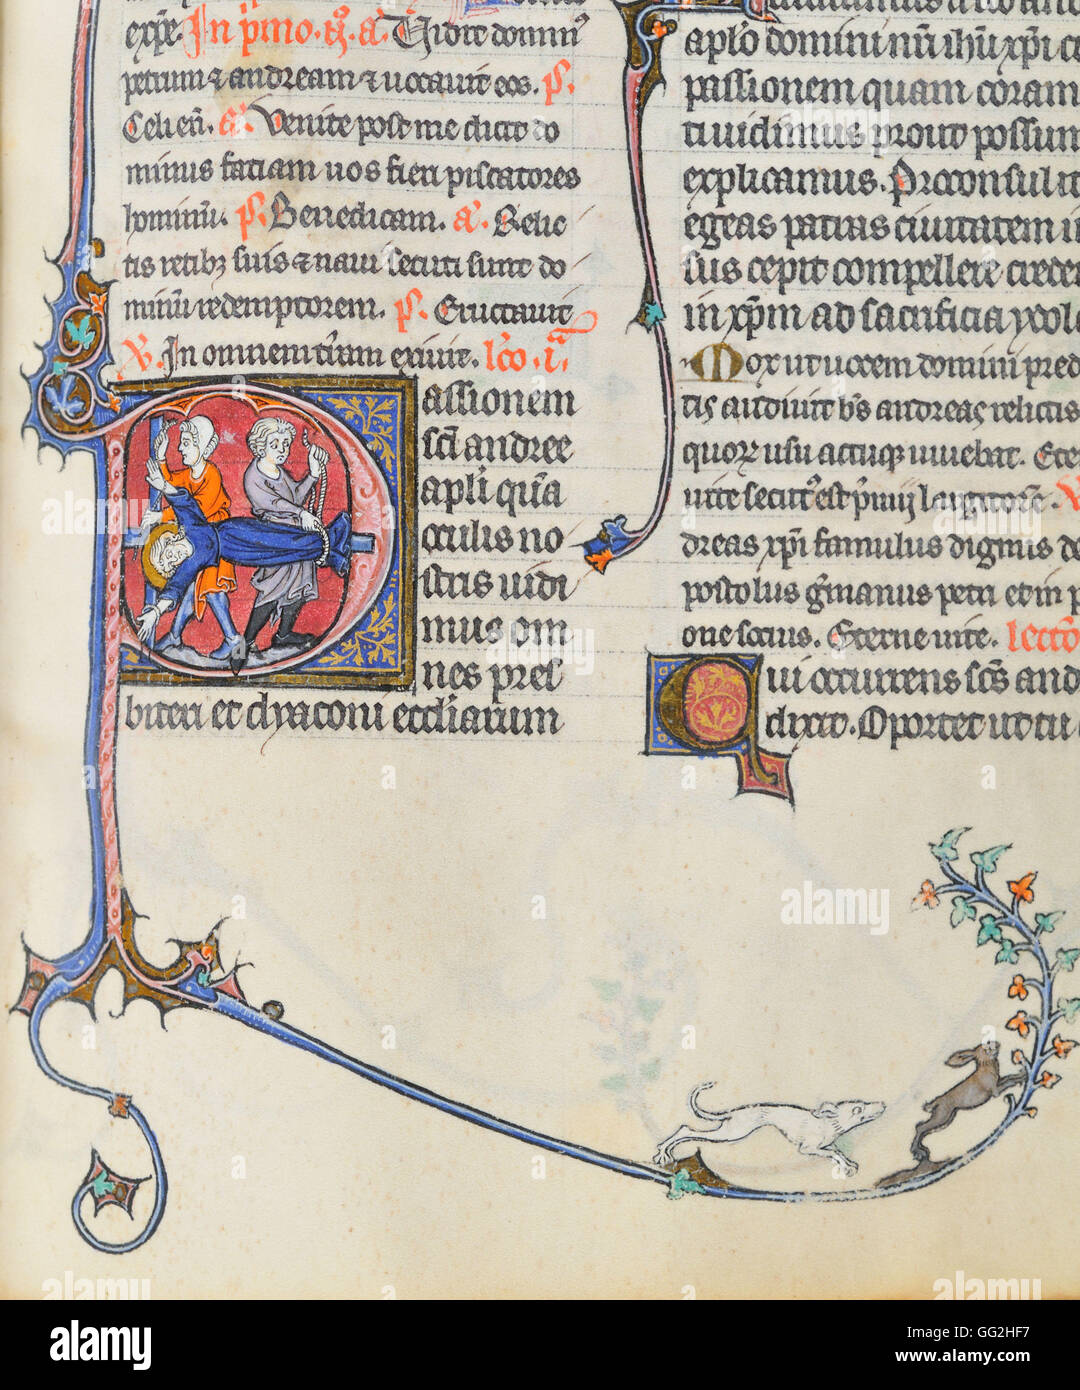 expe. In p̄mo. ꝯ. a. Vidit domin᷒
petrum ⁊ andream ⁊ uocauit eos. p̄s.
Celi en̄. a. Venite post me dicit do
minus faciam uos fieri piscatores
hominū. p̄s. Benedicam. a. Relic
tis retibꝫ suis ⁊ naui secuti sunt do
minū redemptorem. p̄s. Eructauit
V. In omnem t̄ram exiuit. lc̄o .i.ᵃ
Passionem
sc̄i andree
apl̄i quā
oculis no
stris uidi
mus om
nes pres
biteri et dyaconi eccl̄iarum
apl̄o domini nr̄i ih̄u xp̄i
passionem quam coram
ti uidimus prout possum
explicamus. Proconsul
egeas patras ciuitatem i
sus cepit compellere creden
in xp̄m ad sacrificia ydol
Mox ut uocem domini pred
tis audiuit b̄s andreas relictis
quorꝝ usu actuqꝫ uiuebat. Ete
uite secut᷒ est p̄mij largitorē. V
dreas xp̄i famulus dignus de
postolus ḡmanus petri et in p
one socius. Eterne uite. lectio
Qui occurrens sc̄s and
dixit. Oportet ut tu
alamy
a
alamy
a
alamy
alamy
Image ID: GG2HF7
www.alamy.com